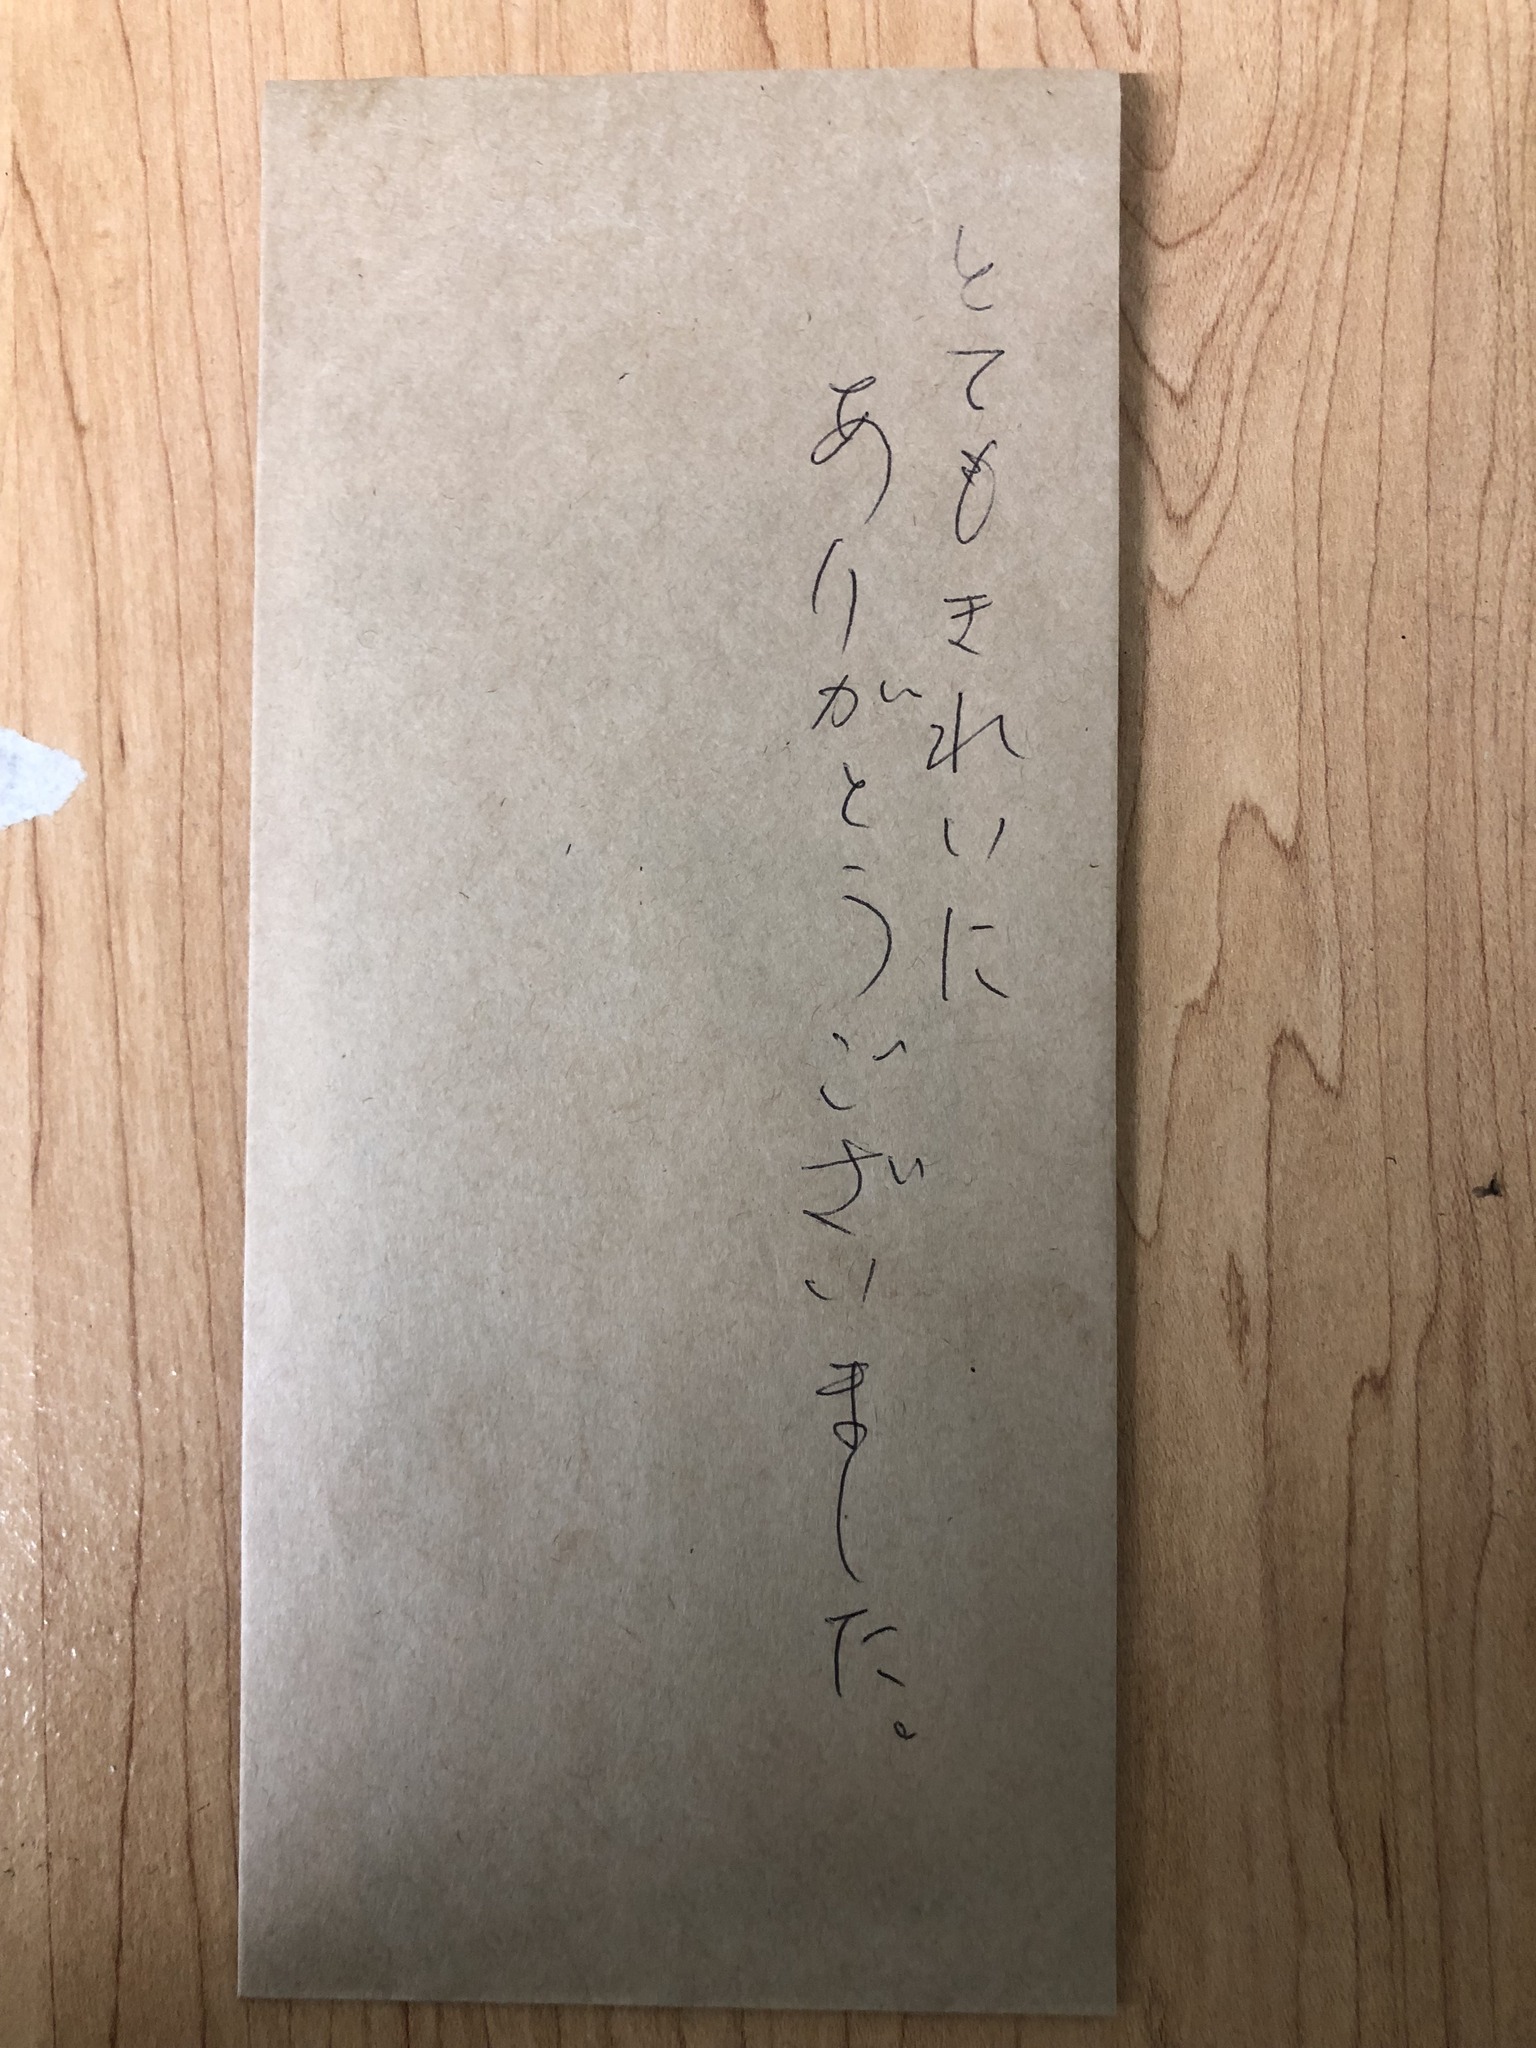 とてもきれいに
ありがとうございました。